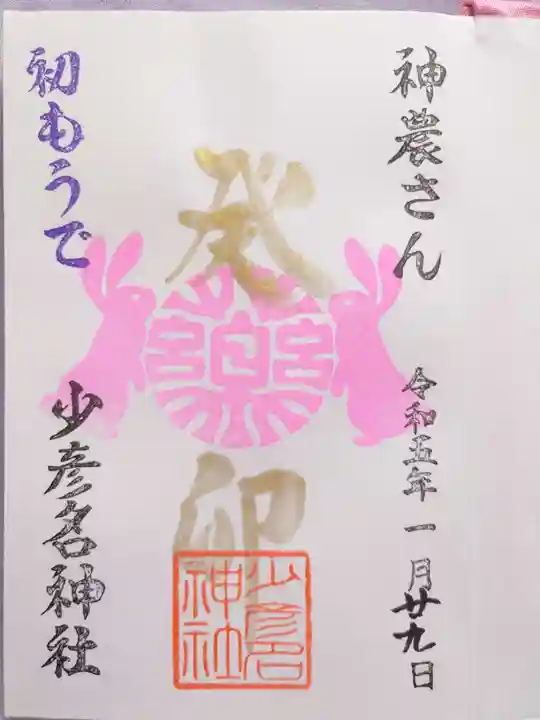 神農さん
令和五年一月廿九日
癸卯
少彦名
神社
初もうで
少彦名神社